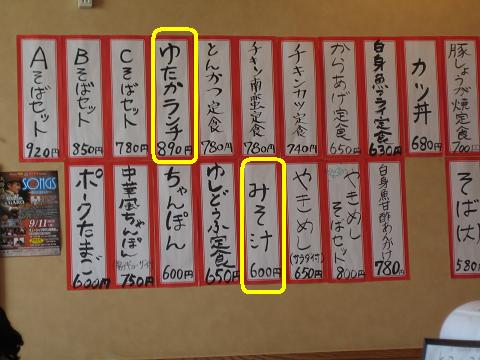 Aそばセット 920円
Bそばセット 850円
Cそばセット 780円
ゆたかランチ 890円
とんかつ定食 780円
チキン南蛮定食 780円
チキンカツ定食 740円
からあげ定食 650円
白身魚フライ定食 630円
カツ丼 680円
豚しょうが焼定食 700
SONGS
9/11
ポークたまご 600円
中華風ちゃんぽん 750円
ちゃんぽん 600円
ゆしどうふ定食 650円
みそ汁 600円
やきめし (サラダ付) 650円
やきめし そばセット 800円
白身魚甘酢あんかけ 780円
そば(大) 580